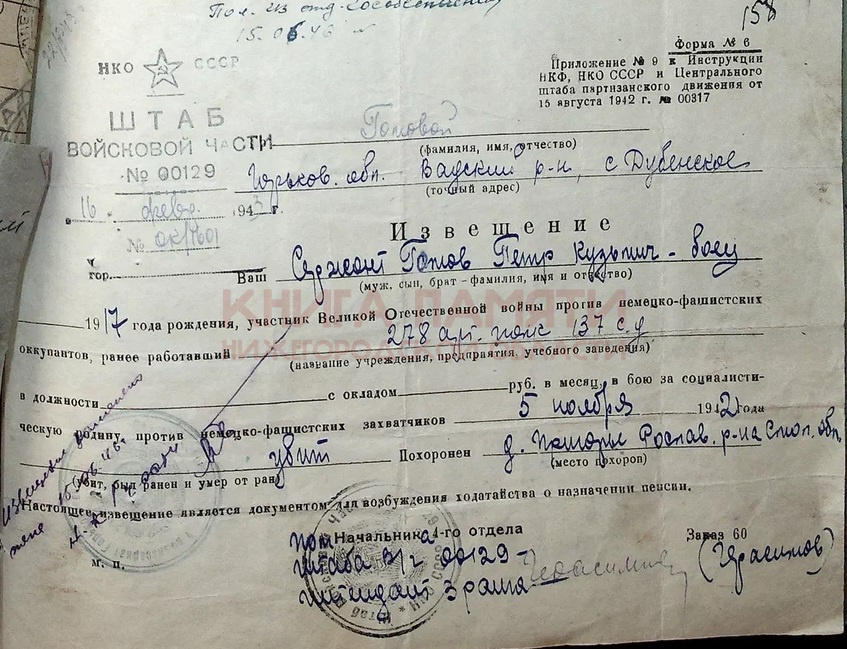 Пол. из отд. Гособеспечения
15.06.46
158
Форма № 6
НКО СССР
Приложение № 9 к Инструкции
НКФ, НКО СССР и Центрального
штаба партизанского движения от
15 августа 1942 г. № 00317
ШТАБ
ВОЙСКОВОЙ ЧАСТИ
№ 00129
Поповой
(фамилия, имя, отчество)
Горьков. обл. Вадский р-н, с Дубенское
(точный адрес)
16 февр. 1943 г.
№
Извещение
гор.
Ваш Сержант Попов Петр Кузьмич - боец
(муж, сын, брат – фамилия, имя и отчество)
КНИГА ПАМЯТИ
1917 года рождения, участник Великой Отечественной войны против немецко-фашистских
278 арт. полк 137 с.д
оккупантов, ранее работавший
НИЖЕГОРОДСКОЙ ОБЛАСТИ
(название учреждения, предприятия, учебного заведения)
в должности с окладом руб. в месяц, в бою за социалисти-
ческую родину против немецко-фашистских захватчиков 5 ноября 1942 года
убит Похоронен д. Рослав. р-на Смол. обл.
(убит, был ранен и умер от ран) (место похорон)
Извещение
жене 15/06.46г.
Настоящее извещение является документом для возбуждения ходатайства о назначении пенсии.
Пом Начальника 4-го отдела Заказ 60
штаба 00129-
м. п.
интендант 3 ранга (Герасимов)